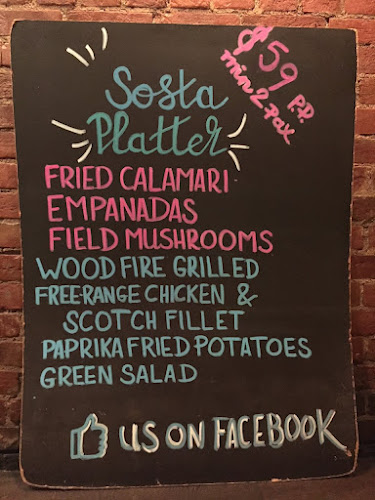 $59 P.P.
min 2 Pax
Sosta
Platter
FRIED CALAMARI
EMPANADAS
FIELD MUSHROOMS
WOOD FIRE GRILLED
FREE-RANGE CHICKEN &
SCOTCH FILLET
PAPRIKA FRIED POTATOES
GREEN SALAD
US ON FACEBOOK